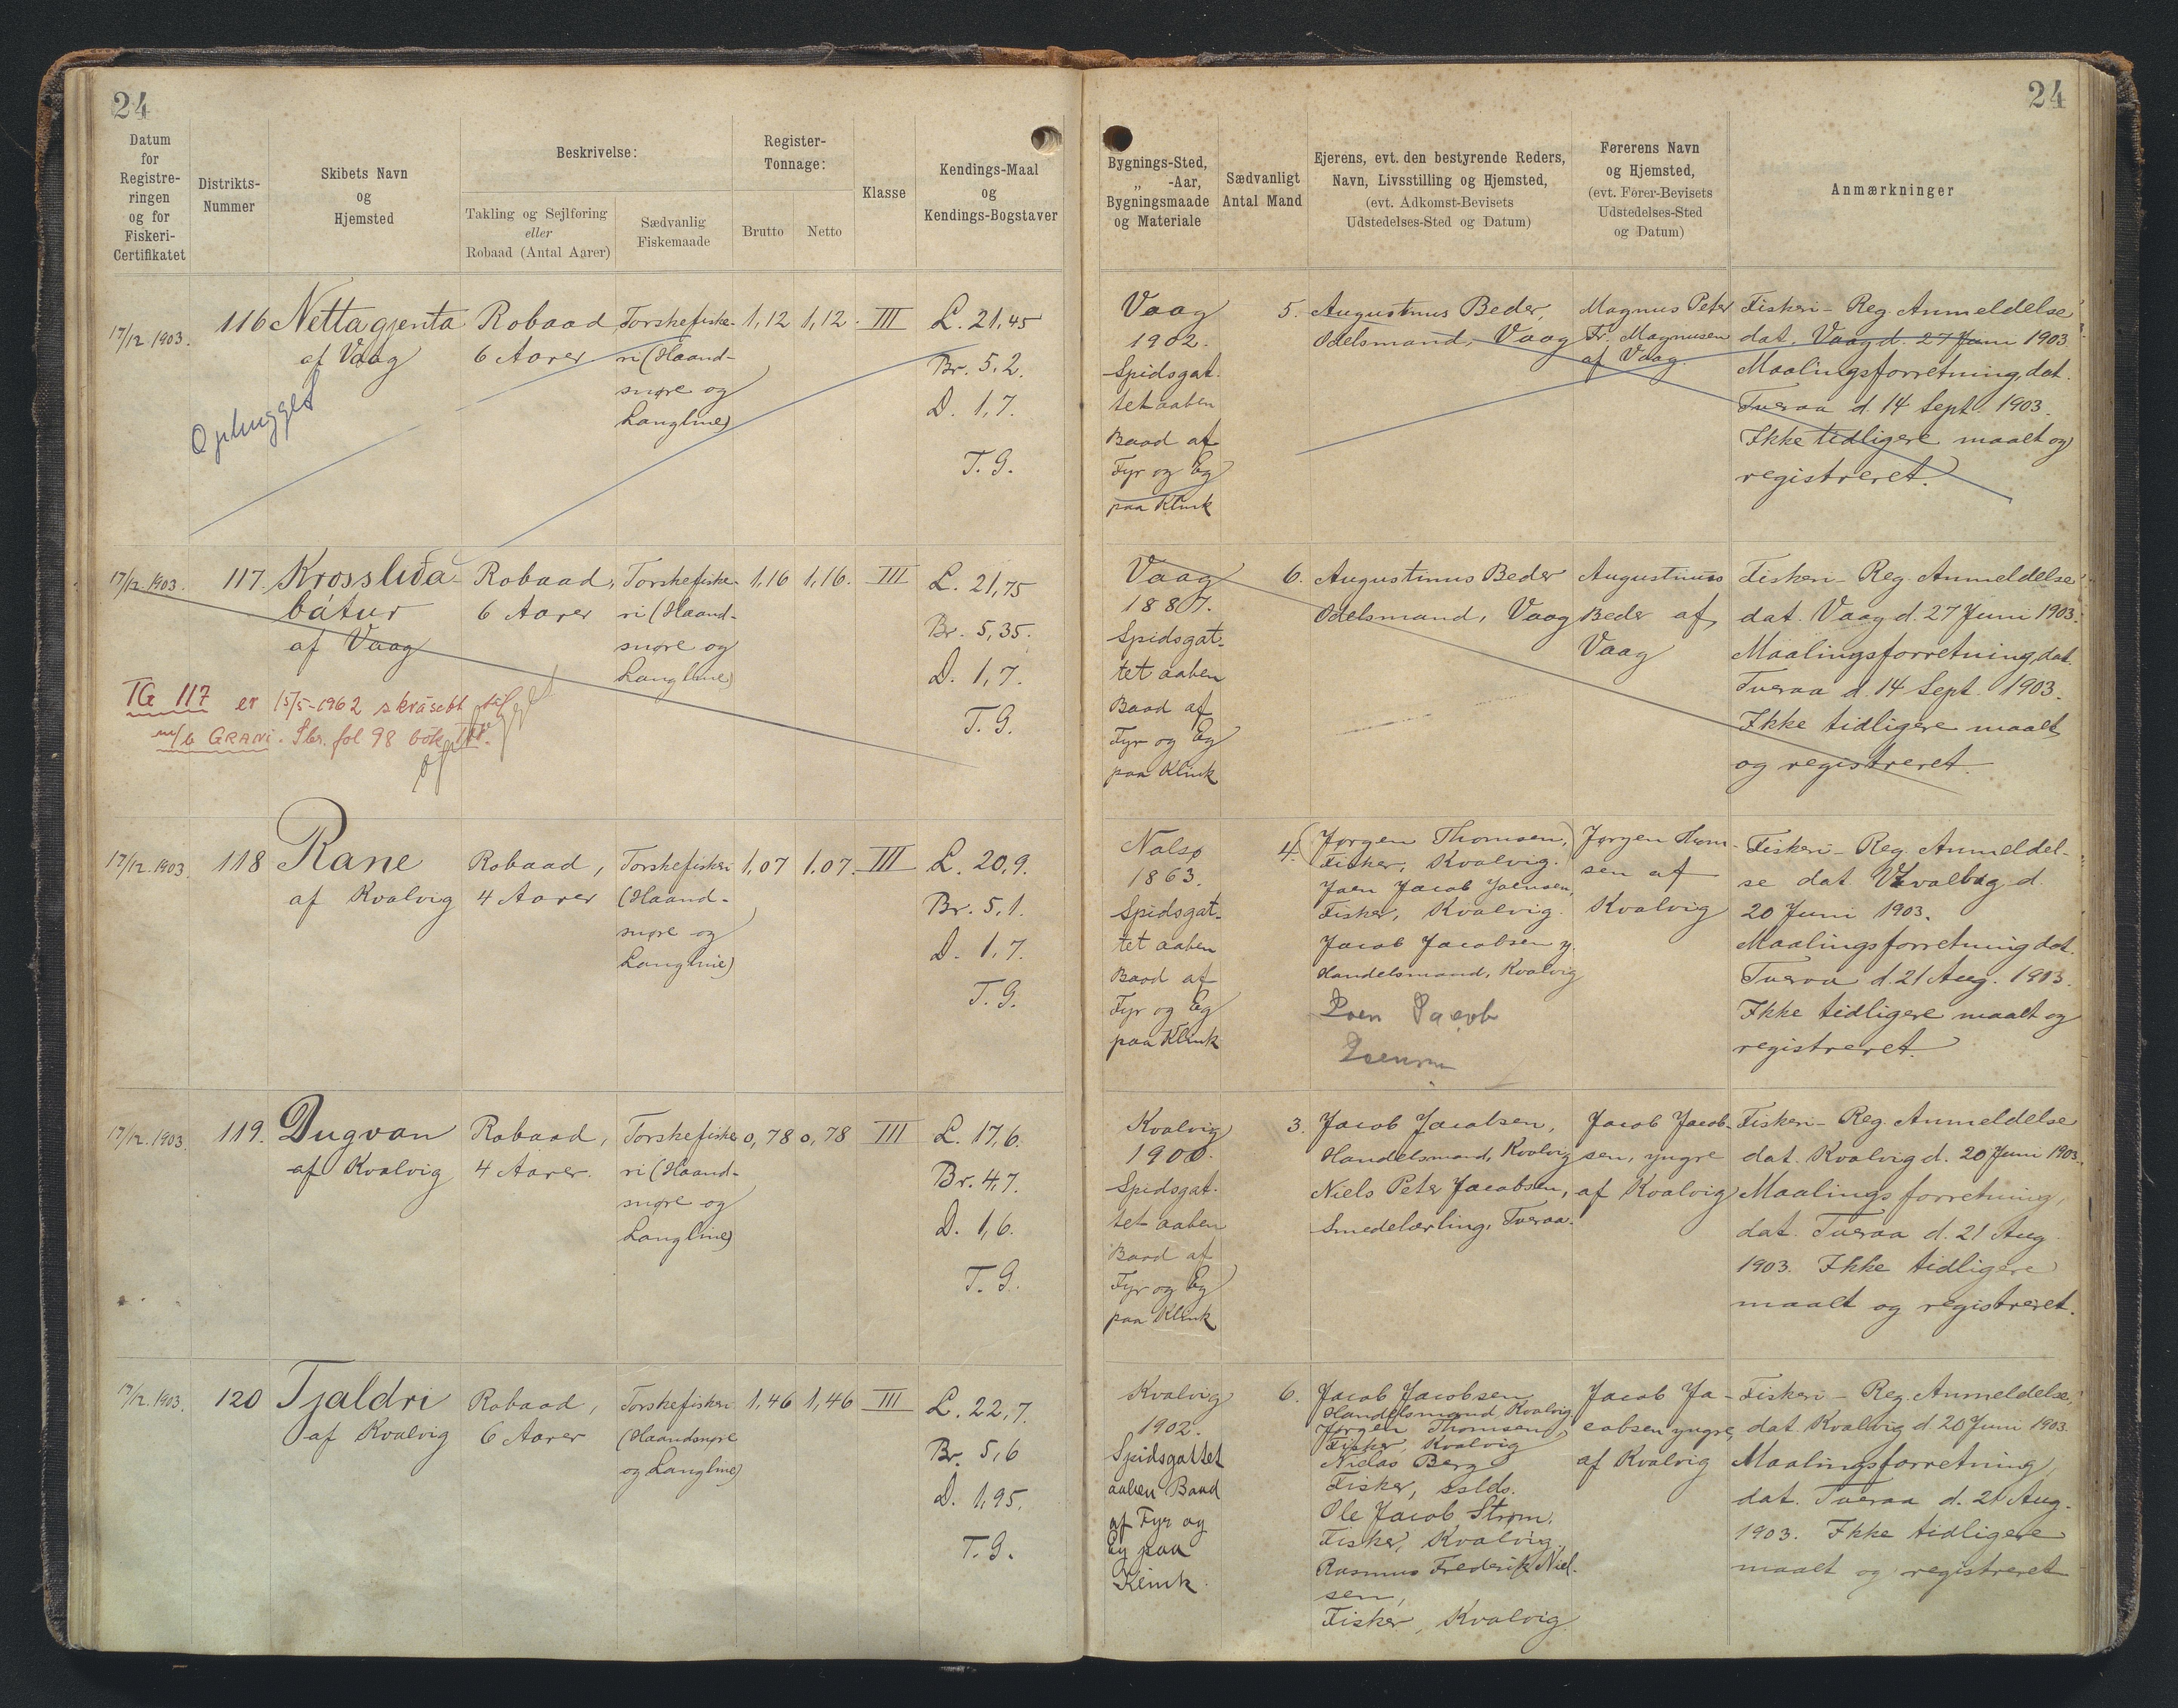 24
24
Datum
for
Registre-
ringen
og for
Fiskeri-
Certifikatet
Distrikts-
Nummer
Skibets Navn
og
Hjemsted
Beskrivelse:
Takling og Sejlføring
eller
Robaad (Antal Aarer)
Sædvanlig
Fiskemaade
Register-
Tonnage:
Brutto
Netto
Klasse
Kendings-Maal
og
Kendings-Bogstaver
Bygnings-Sted,
„ -Aar,
Bygningsmaade
og Materiale
Sædvanligt
Antal Mand
Ejerens, evt. den bestyrende Reders,
Navn, Livsstilling og Hjemsted,
(evt. Adkomst-Bevisets
Udstedelses-Sted og Datum)
Førerens Navn
og Hjemsted,
(evt. Fører-Bevisets
Udstedelses-Sted
og Datum)
Anmærkninger
17/12 1903.
116
Nettagjenta
af Vaag
Ophugget
Robaad
6 Aarer
Torskefiske-
ri (Haand-
snøre og
Langline)
1,12
1,12.
III
L. 21,45
Br. 5,2.
D. 1,7.
T. G.
Vaag
1902.
Spidsgat-
tet aaben
Baad af
Fyr og Eg
paa Klink
5.
Augustinus Beder,
Odelsmand, Vaag
Magnus Peter
Fr. Magnusen
af Vaag.
Fiskeri-Reg. Anmeldelse
dat. Vaag d. 27 Juni 1903.
Maalingsforretning, dat.
Tveraa d. 14 Sept. 1903.
Ikke tidligere maalt og
registreret.
17/12. 1903.
117.
Krossliða-
bátur
af Vaag
TG 117 er 15/5-1962 skrásett til
m/b GRANI. Sbr. fol 98 bók III.
Robaad,
6 Aarer
Torskefiske-
ri (Haand-
snøre og
Langline)
1,16
1,16.
III
L. 21,75
Br. 5,35.
D. 1,7.
T. G.
Vaag
1887.
Spidsgat-
tet aaben
Baad af
Fyr og Eg
paa Klink
6.
Augustinus Beder
Odelsmand, Vaag
Augustinus
Beder af
Vaag
Fiskeri-Reg. Anmeldelse
dat. Vaag d. 27 Juni 1903.
Maalingsforretning, dat.
Tveraa d. 14 Sept. 1903.
Ikke tidligere maalt
og registreret.
17/12. 1903.
118
Rane
af Kvalvig
Robaad,
4 Aarer
Torskefiskeri
(Haand-
snøre og
Langline)
1,07
1,07.
III
L. 20,9.
Br. 5,1.
D. 1,7.
T. G.
Nolsø
1863.
Spidsgat-
tet aaben
Baad af
Fyr og Eg
paa Klink
4.
(Jørgen Thomsen,)
Fisker, Kvalvig.
Joen Jacob Joensen,
Fisker, Kvalvig.
Jacob Jacobsen y.
Handelsmand, Kvalvig
Joen Jacob
Joensen
Jørgen Thom-
sen af
Kvalvig
Fiskeri-Reg. Anmeldel-
se dat. Hvalbag d.
20 Juni 1903.
Maalingsforretning dat.
Tveraa d. 21 Aug. 1903.
Ikke tidligere maalt og
registreret.
17/12. 1903.
119.
Dugvan
af Kvalvig
Robaad,
4 Aarer.
Torskefiske-
ri (Haand-
snøre og
Langline)
0,78
0,78
III
L. 17,6.
Br. 4,7.
D. 1,6.
T. G.
Kvalvig
1900.
Spidsgat-
tet aaben
Baad af
Fyr og Eg
paa Klink
3.
Jacob Jacobsen,
Handelsmand, Kvalvig
Niels Peter Jacobsen,
Smedelærling, Tveraa.
Jacob Jacob-
sen, yngre
af Kvalvig
Fiskeri-Reg. Anmeldelse
dat. Kvalvig d. 20 Juni 1903.
Maalingsforretning,
dat. Tveraa d. 21 Aug.
1903. Ikke tidligere
maalt og registreret.
17/12. 1903.
120
Tjaldri
af Kvalvig
Robaad,
6 Aarer
Torskefiskeri
(Haandsnøre
og Langline)
1,46
1,46
III
L. 22,7.
Br. 5,6
D. 1,95.
T. G.
Kvalvig
1902.
Spidsgattet
aaben Baad
af Fyr og
Eg paa
Klink.
6.
Jacob Jacobsen
Handelsmand, Kvalvig
Jørgen Thomsen,
Fisker, Kvalvig
Niclas Berg
Fisker, sslds.
Ole Jacob Strøm,
Fisker, Kvalvig.
Rasmus Frederik Niel-
sen,
Fisker, Kvalvig
Jacob Ja-
cobsen yngre,
af Kvalvig
Fiskeri-Reg. Anmeldelse,
dat. Kvalvig d. 20 Juni 1903.
Maalingsforretning,
dat. Tveraa d. 21 Aug.
1903. Ikke tidligere
maalt og registreret